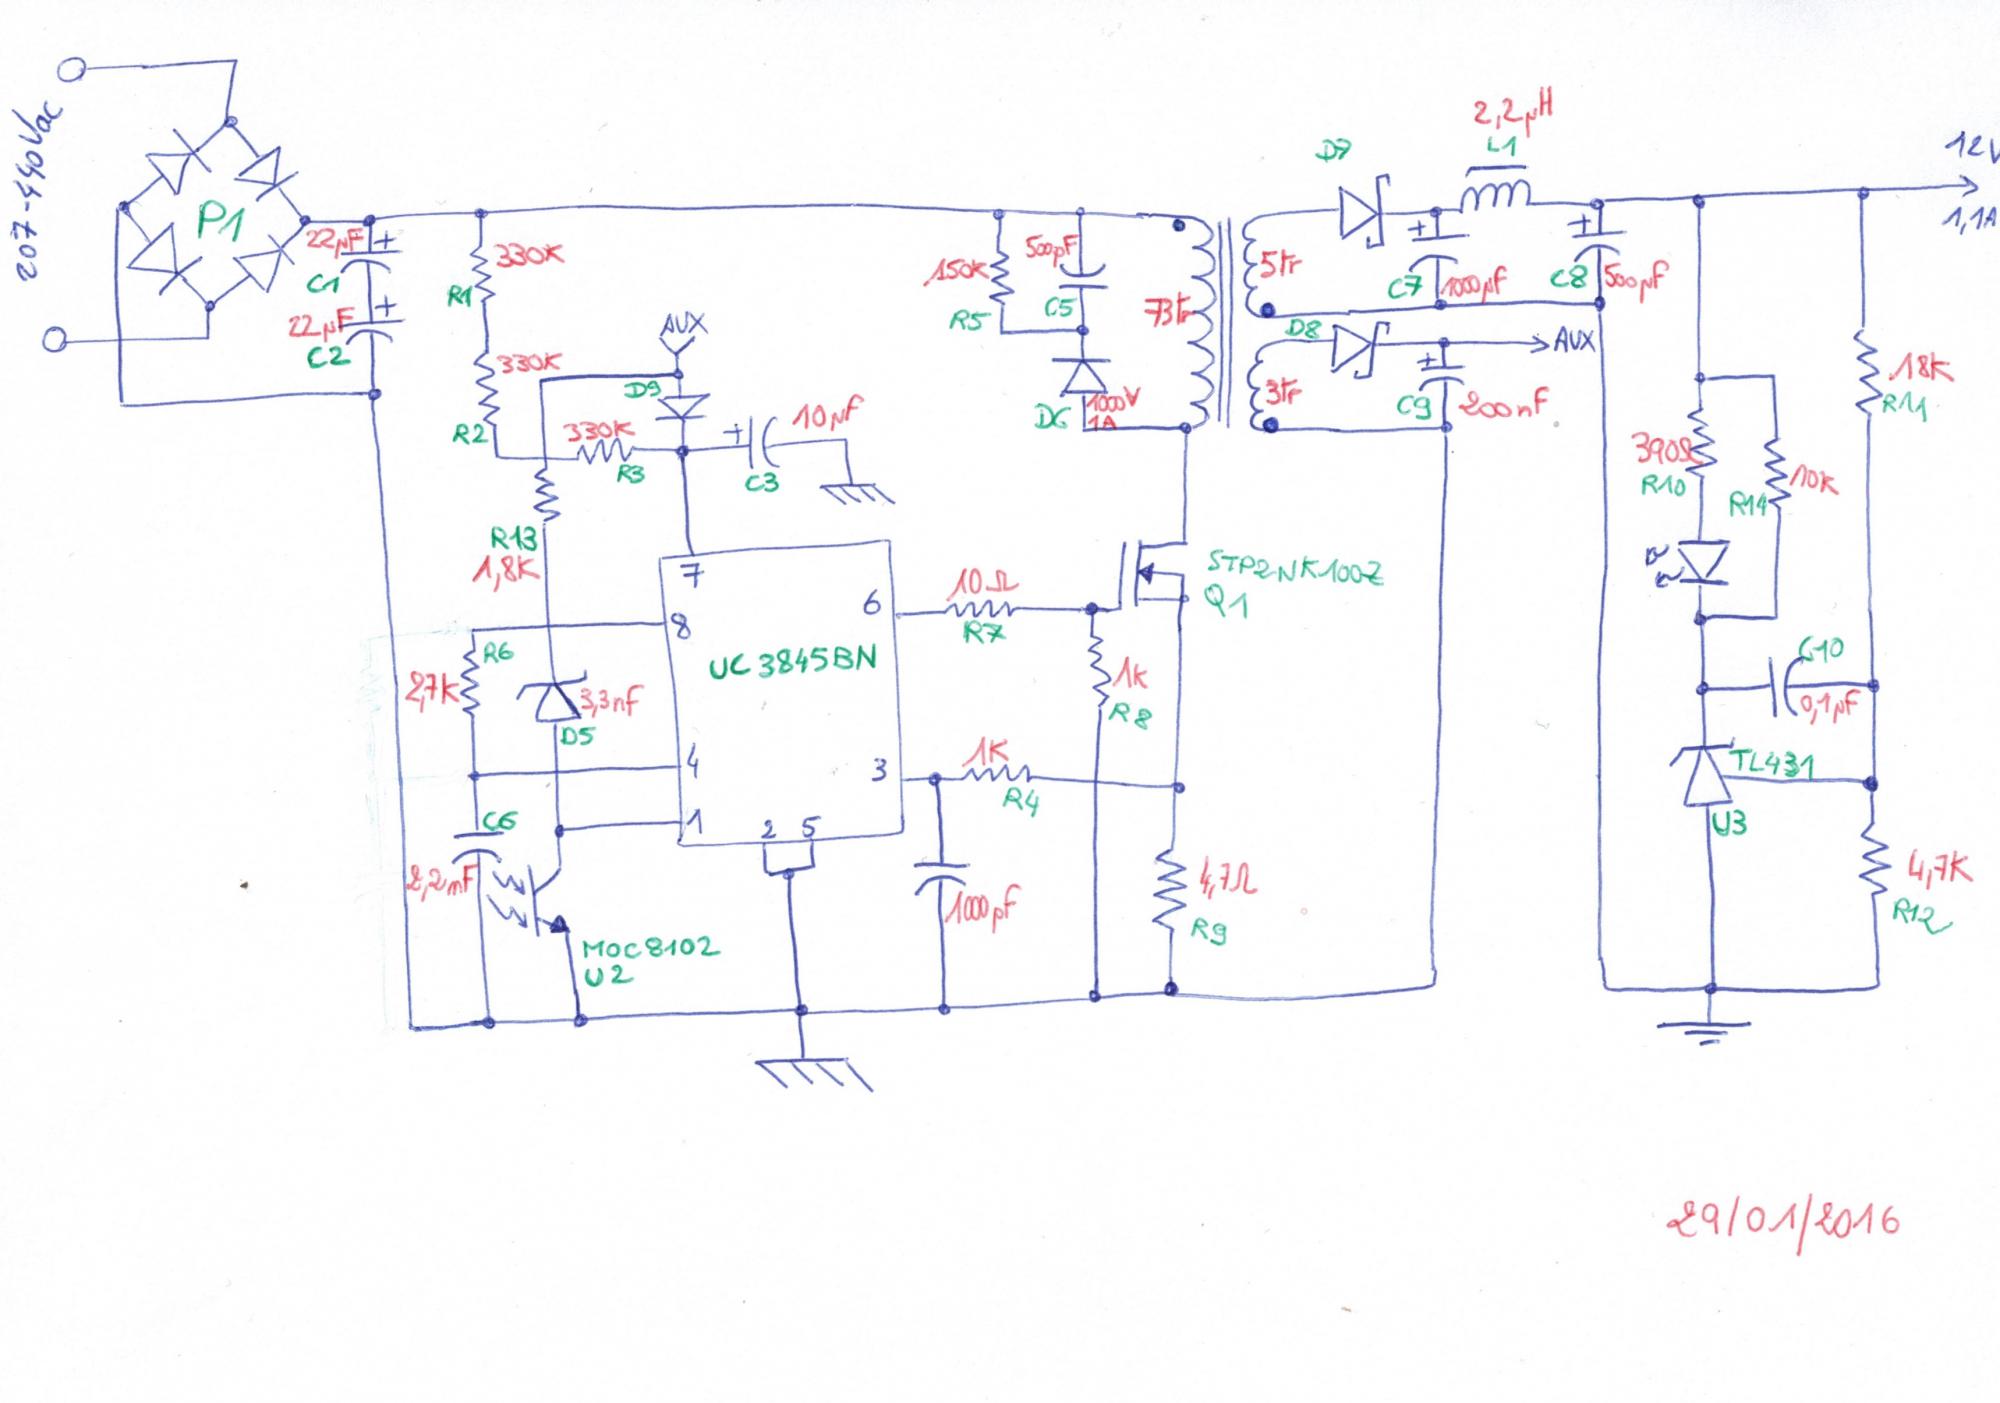 207-440Vac
P1
22µF
C1
22µF
C2
330K
R1
330K
R2
AUX
D9
330K
R3
10µF
C3
R13
1,8K
R6
2,7K
3,3nF
D5
C6
2,2nF
MOC8102
U2
7
8
4
1
2 5
6
3
UC3845BN
150K
R5
500pF
C5
D6
1000V
1A
73tr
10Ω
R7
1K
R8
1K
R4
1000pF
STP2NK100Z
Q1
4,7Ω
R9
5tr
3tr
D7
2,2µH
L1
C7
1000µF
C8
500µF
D8
AUX
C9
200nF
12V
1,1A
390Ω
R10
R14
10K
18K
R11
C10
0,1µF
TL431
U3
4,7K
R12
29/01/2016